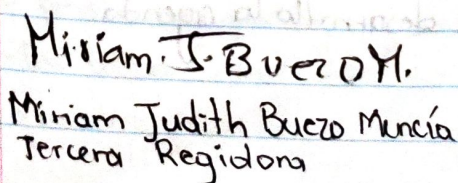 Miriam. J. Buezo M.
Miriam Judith Buezo Muncía
Tercera Regidora